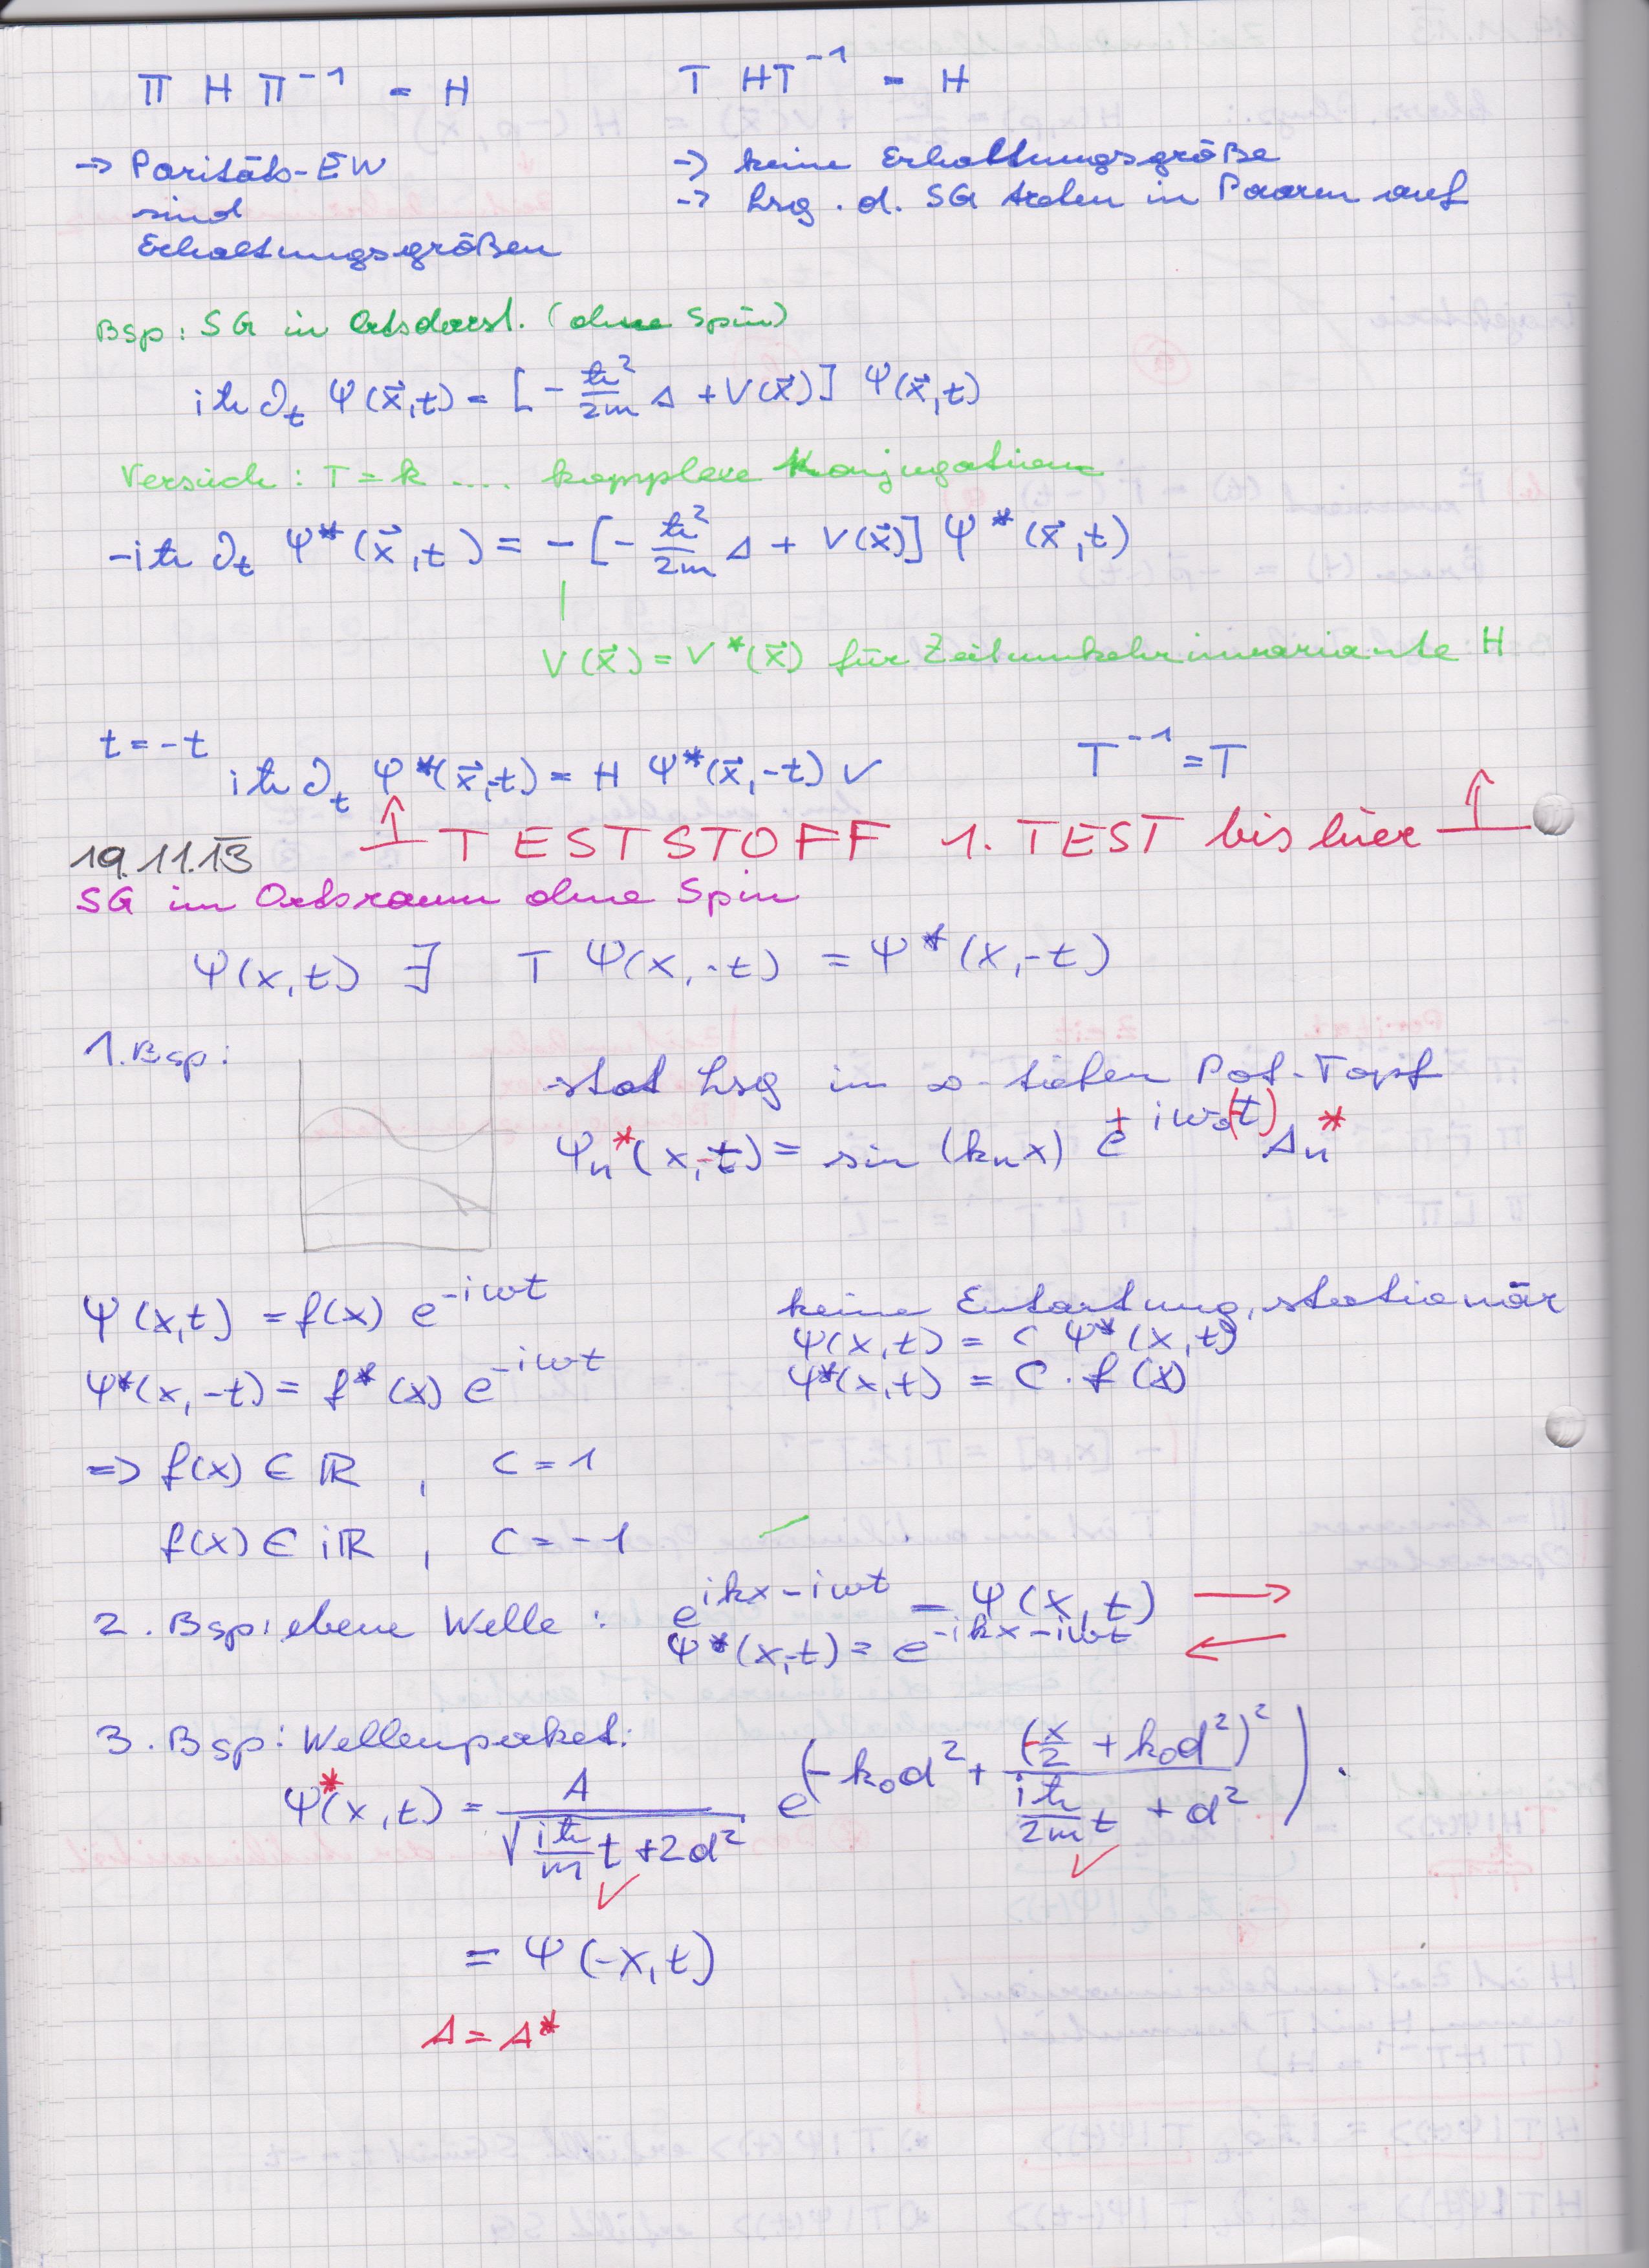 Π H Π⁻¹ = H    T HT⁻¹ = H
→ Paritäts-EW    → keine Erhaltungsgröße
sind    → Lsg. d. SG treten in Paaren auf
Erhaltungsgrößen
Bsp: SG in Ortsdarst. (ohne Spin)
iℏ ∂_t Ψ(x⃗,t) = [-ℏ²/2m Δ + V(x⃗)] Ψ(x⃗,t)
Versuch: T = k .... komplexe Konjugation
-iℏ ∂_t Ψ*(x⃗,t) = -[-ℏ²/2m Δ + V(x⃗)] Ψ*(x⃗,t)
V(x⃗) = V*(x⃗) für Zeitumkehrinvariante H
t = -t
iℏ ∂_t Ψ*(x⃗,-t) = H Ψ*(x⃗,-t) ✓    T⁻¹ = T
↑ TESTSTOFF 1. TEST bis hier ↑
19.11.13
SG im Ortsraum ohne Spin
Ψ(x,t) ∃ T Ψ(x,-t) = Ψ*(x,-t)
1. Bsp:
stat Lsg in ∞-tiefen Pot-Topf
Ψ_n*(x,-t) = sin (k_n x) e^{+iω_n(-t)} A_n*
Ψ(x,t) = f(x) e^{-iωt}    keine Entartung, stationär
Ψ(x,t) = C Ψ*(x,t)
Ψ*(x,-t) = f*(x) e^{-iωt}    Ψ*(x,t) = C · f(x)
=> f(x) ∈ ℝ , C = 1
f(x) ∈ iℝ , C = -1
2. Bsp: ebene Welle : e^{ikx-iωt} = Ψ(x,t) →
Ψ*(x,-t) = e^{-ikx-iωt} ←
3. Bsp: Wellenpaket:
Ψ*(x,t) = A/√(iℏ/m t + 2d²) e^(-k₀d² + (-x/2 + k₀d²)²/(iℏ/2m t + d²)) .
✓ ✓
= Ψ(-x,t)
A = A*